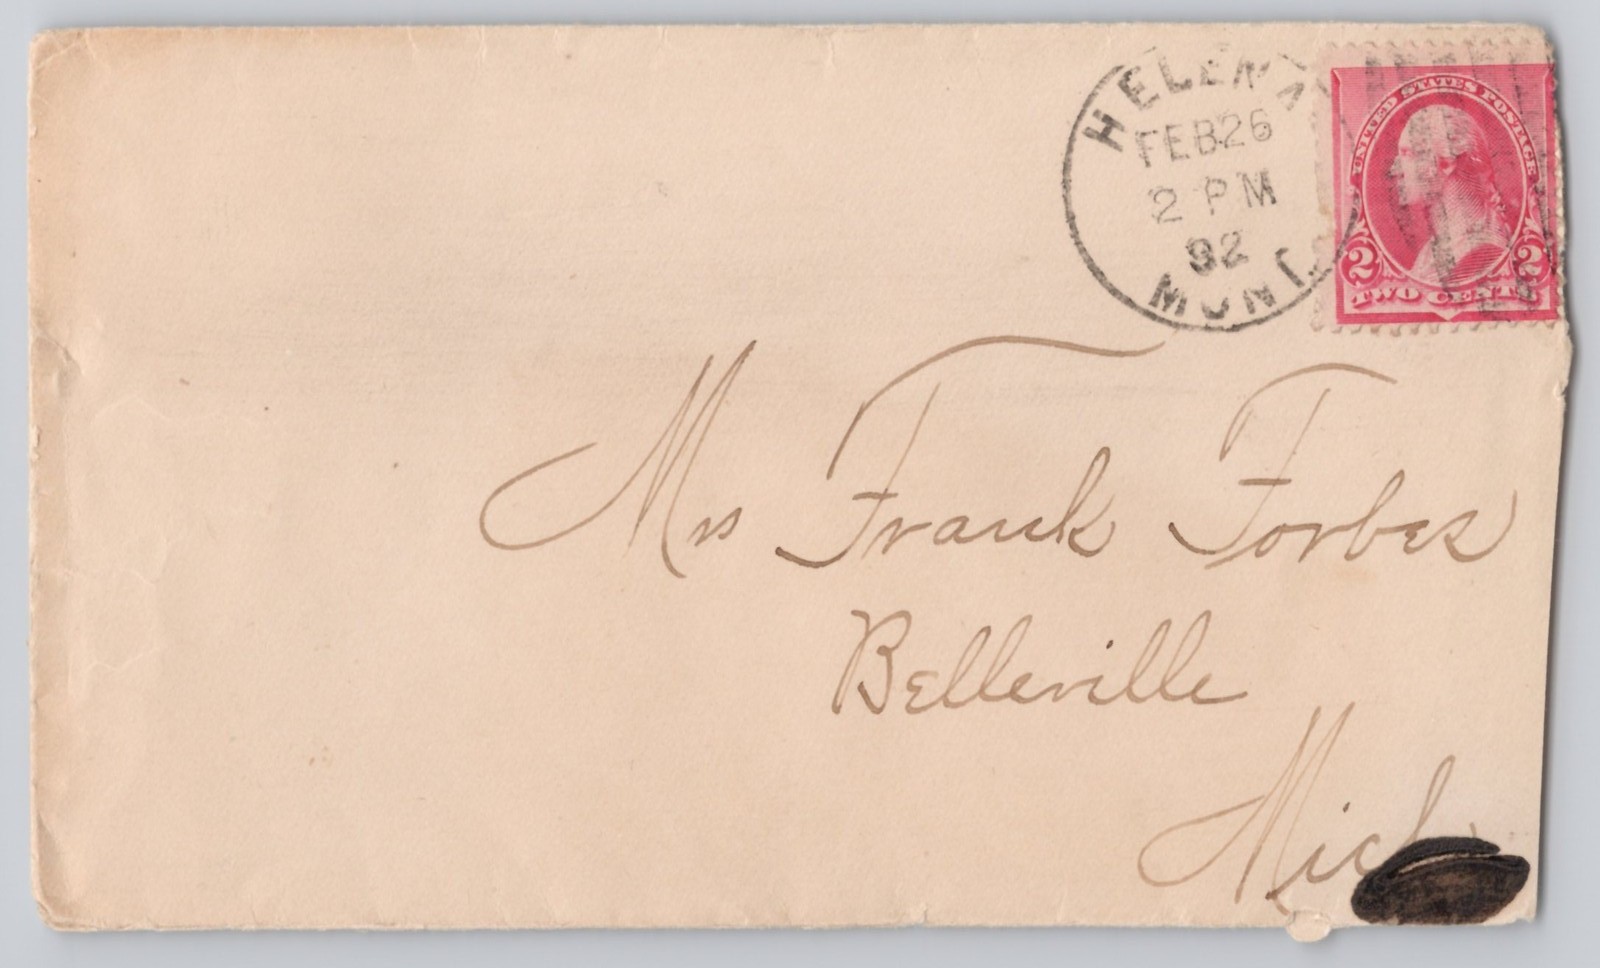 HELENA
FEB 26
2 PM
92
MONT
UNITED STATES POSTAGE
2 2
TWO CENTS
Mrs Frank Forbes
Belleville
Mich